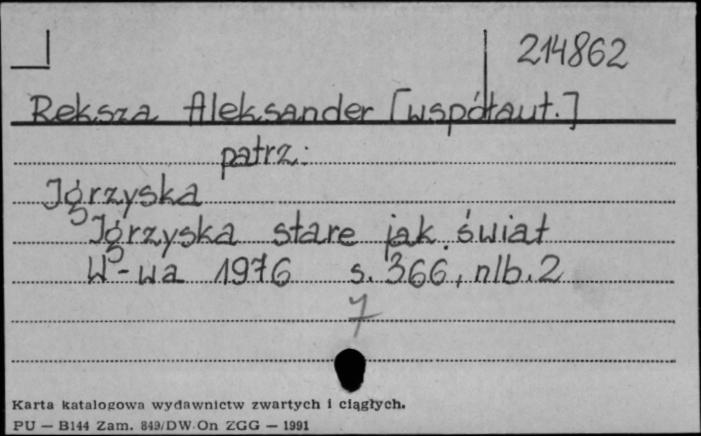 214862
Reksza Aleksander [współaut.]
patrz:
Igrzyska
Igrzyska stare jak świat
W-wa 1976 s. 366, nlb. 2
7
Karta katalogowa wydawnictw zwartych i ciągłych.
PU — B144 Zam. 849/DW.On ZGG — 1991